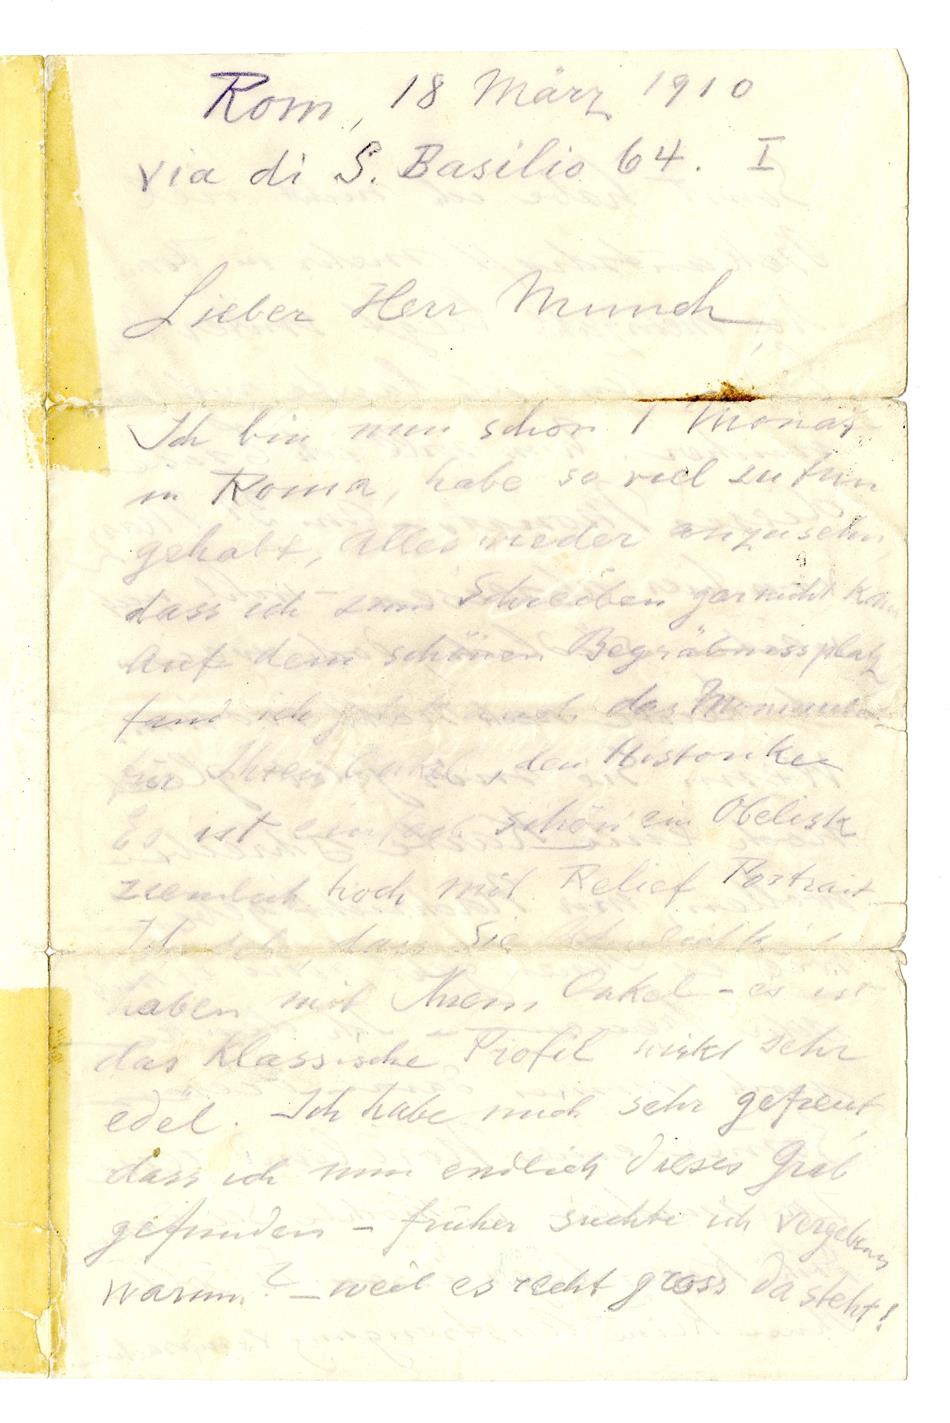 Rom, 18 März 1910
via di S. Basilio 64. I
Lieber Herr Munch,
Ich bin nun schon 1 Monat
in Roma, habe so viel zu tun
gehabt, Alles wieder anzusehn,
dass ich zum Schreiben gar nicht kam
Auf dem schönen Begräbnissplatz
fand ich auch das Monument
für Ihren Onkel, den Historiker
Es ist einfach schön ein Obelisk
ziemlich hoch mit Relief Portrait
dass Sie
haben mit Ihrem Onkel – es ist
das Klassische Profil wirkt sehr
edel. Ich habe mich sehr gefreut,
dass ich nun endlich dieses Grab
gefunden – früher suchte ich vergebens
warum? – weil es recht gross da steht!